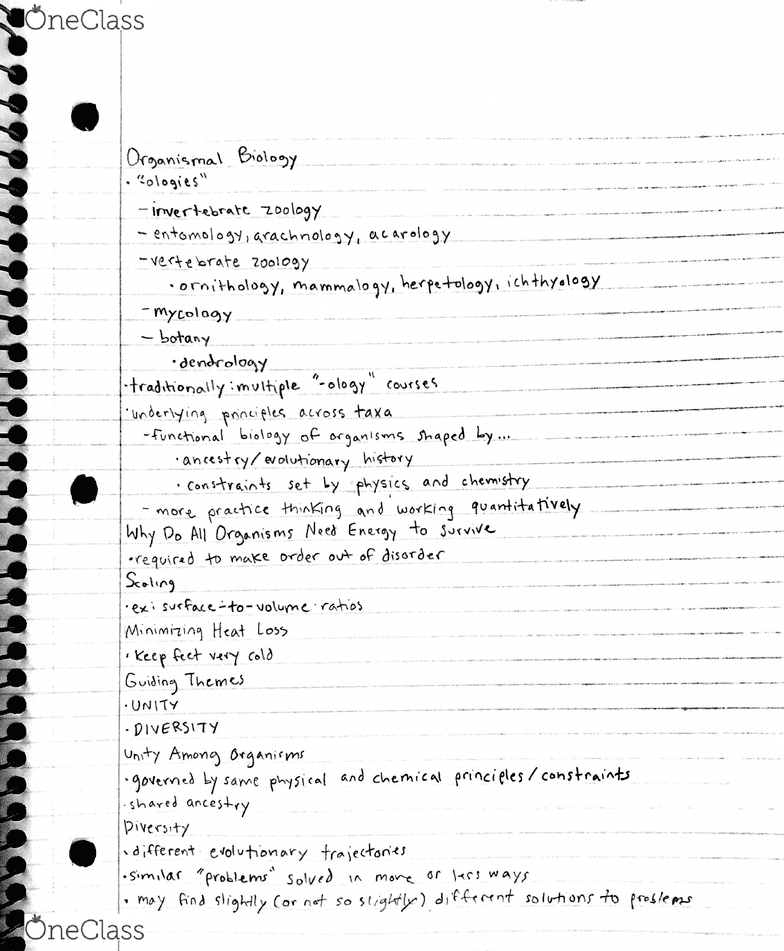 OneClass
Organismal Biology
• "-ologies"
- invertebrate zoology
- entomology, arachnology, acarology
- vertebrate zoology
• ornithology, mammalogy, herpetology, ichthyology
- mycology
- botany
• dendrology
• traditionally: multiple "-ology" courses
• underlying principles across taxa
- functional biology of organisms shaped by...
• ancestry/evolutionary history
• constraints set by physics and chemistry
- more practice thinking and working quantitatively
Why Do All Organisms Need Energy to survive
• required to make order out of disorder
Scaling
• ex: surface-to-volume ratios
Minimizing Heat Loss
• keep feet very cold
Guiding Themes
• UNITY
• DIVERSITY
Unity Among Organisms
• governed by same physical and chemical principles/constraints
• shared ancestry
Diversity
• different evolutionary trajectories
• similar "problems" solved in more or less ways
• may find slightly (or not so slightly) different solutions to problems
OneClass